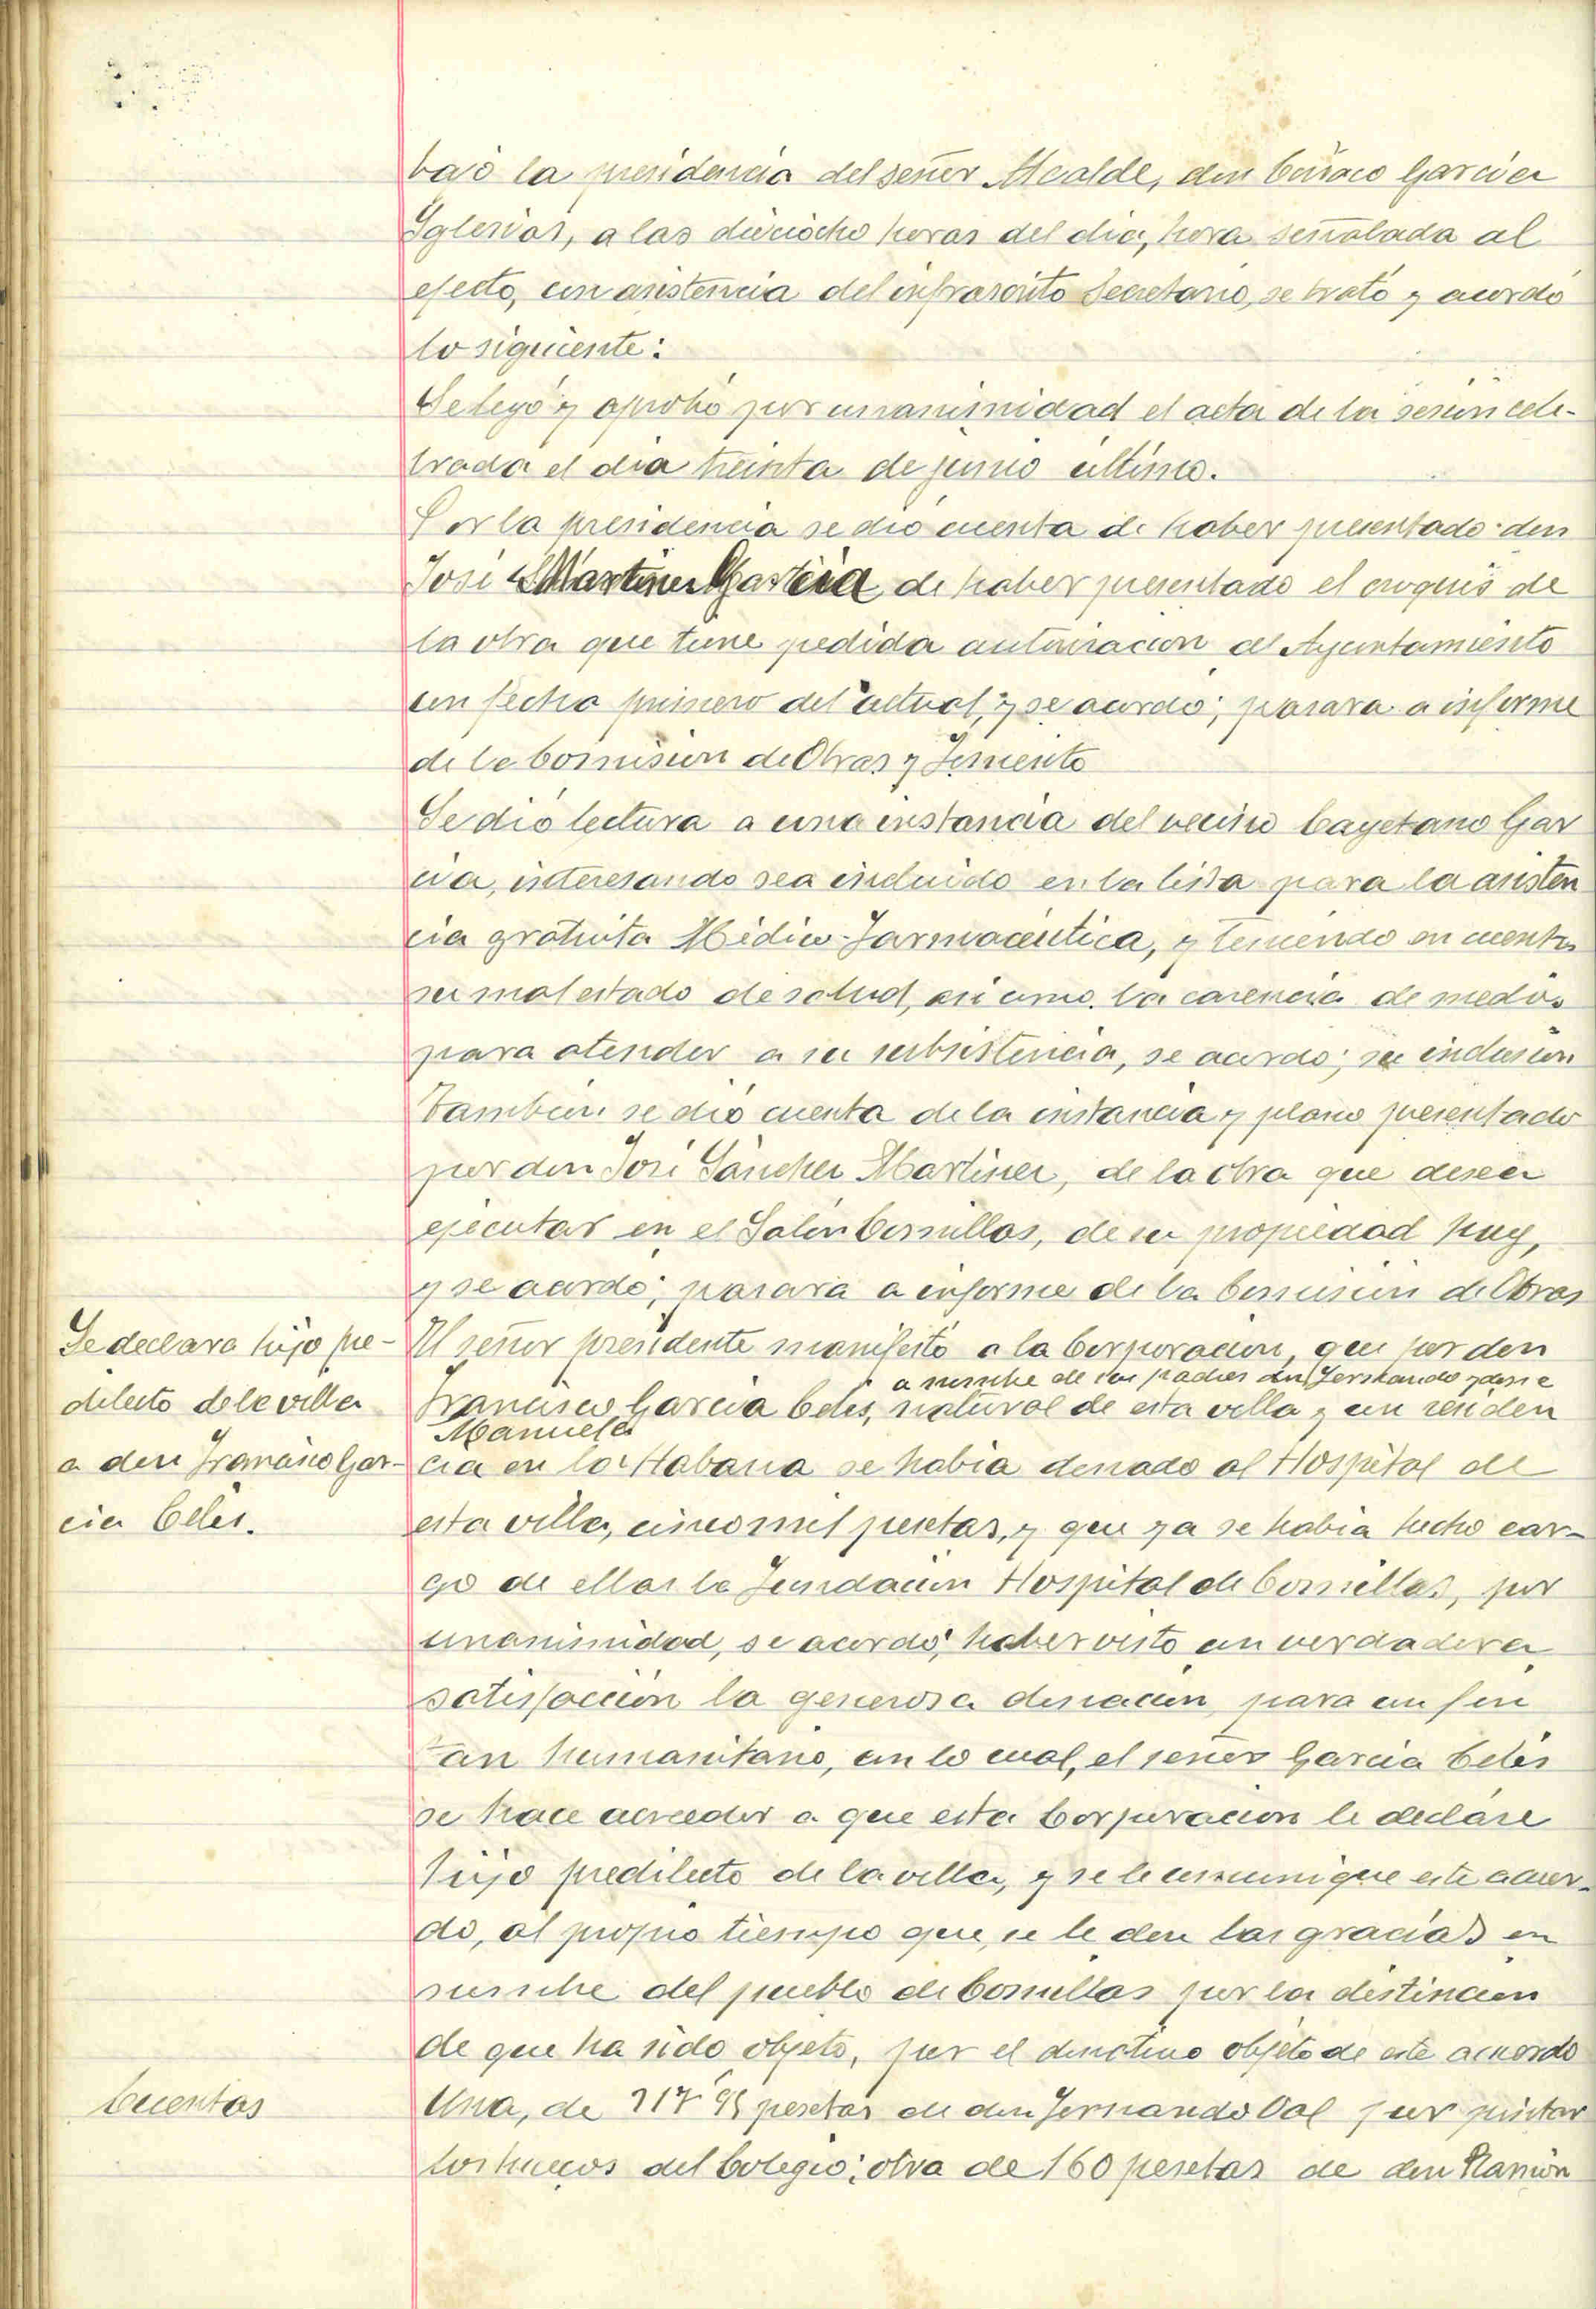 bajo la presidencia del señor Alcalde, don Ciriaco Garcia
Iglesias, a las dieciocho horas del dia, hora señalada al
efecto, con asistencia del infrascrito Secretario, se trató y acordó
lo siguiente:
Se leyó y aprobó por unanimidad el acta de la sesion cele-
brada el dia treinta de junio último.
Por la presidencia se dió cuenta de haber presentado don
José Martinez Garcia de haber presentado el croquis de
la obra que tiene pedida autorizacion al Ayuntamiento
con fecha primero del actual, y se acordó; pasara a informe
de la Comision de Obras y Fomento
Se dió lectura a una instancia del vecino Cayetano Gar
cia, interesando sea incluido en la lista para la asisten
cia gratuita Médico-Farmacéutica, y teniendo en cuenta
su mal estado de salud, asi como la carencia de medios
para atender a su subsistencia, se acordó; su inclusion
Tambien se dió cuenta de la instancia y plano presentado
por don José Sánchez Martinez, de la obra que desea
ejecutar en el Salón Comillas, de su propiedad hoy,
y se acordó; pasara a informe de la Comision de Obras
Se declara hijo pre-
dilecto de la villa
a don Francisco Gar-
cia Celis.
El señor presidente manifestó a la Corporacion, que por don
a nombre de sus padres don Fernando y doña
Francisco Garcia Celis, natural de esta villa y con residen
Manuela
cia en la Habana se habia donado al Hospital de
esta villa, cinco mil pesetas, y que ya se habia hecho car-
go de ellas la Fundacion Hospital de Comillas, por
unanimidad, se acordó; haber visto con verdadera
satisfacción la generosa donacion para un fin
tan humanitario, con lo cual, el señor Garcia Celis
se hace acreedor a que esta Corporacion le declare
hijo predilecto de la villa, y se le comunique este acuer-
do, al propio tiempo que, se le den las gracias en
nombre del pueblo de Comillas por la distincion
de que ha sido objeto, por el donativo objeto de este acuerdo
Cuentas
Una, de pesetas de don Fernando Val por pintar
los huecos del Colegio; otra de 160 pesetas de don Ramón